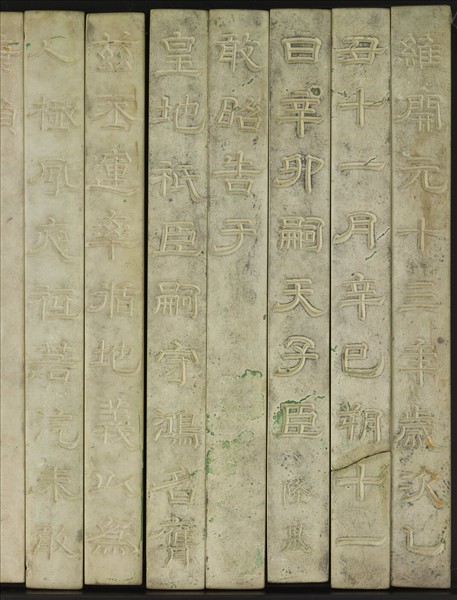 維開元十三年歲次乙
丑十一月辛巳朔十一
日辛卯嗣天子臣隆基
敢昭告于
皇地祇臣嗣守鴻名膺
茲丕運率循地義以為
人極夙夜祗若汔未敢